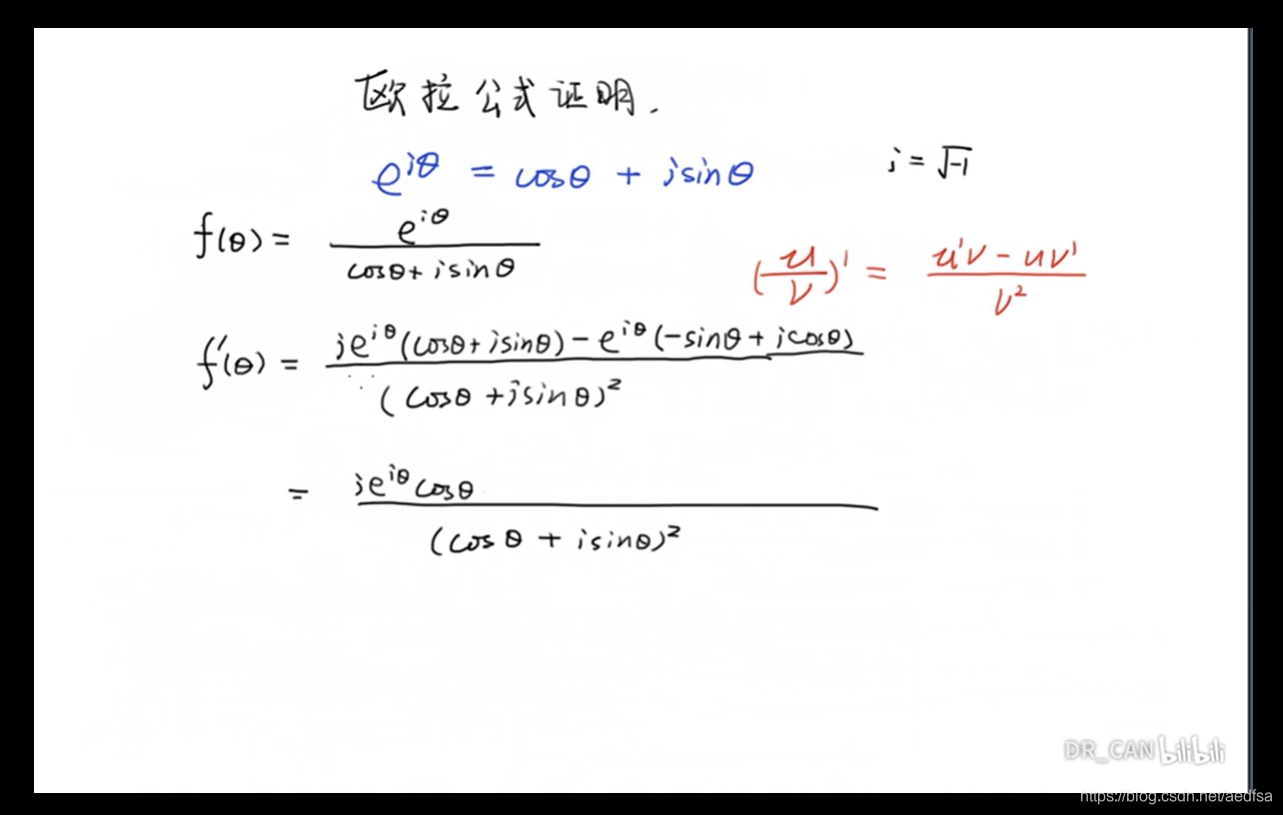 欧拉公式证明.
e^{iθ} = cosθ + isinθ
i = √-1
f(θ) = e^{iθ} / (cosθ + isinθ)
(u/v)' = (u'v - uv') / v²
f'(θ) = (ie^{iθ}(cosθ + isinθ) - e^{iθ}(-sinθ + icosθ)) / (cosθ + isinθ)²
= ie^{iθ}cosθ / (cosθ + isinθ)²
DR_CAN bilibili
https://blog.csdn.net/aedfsa